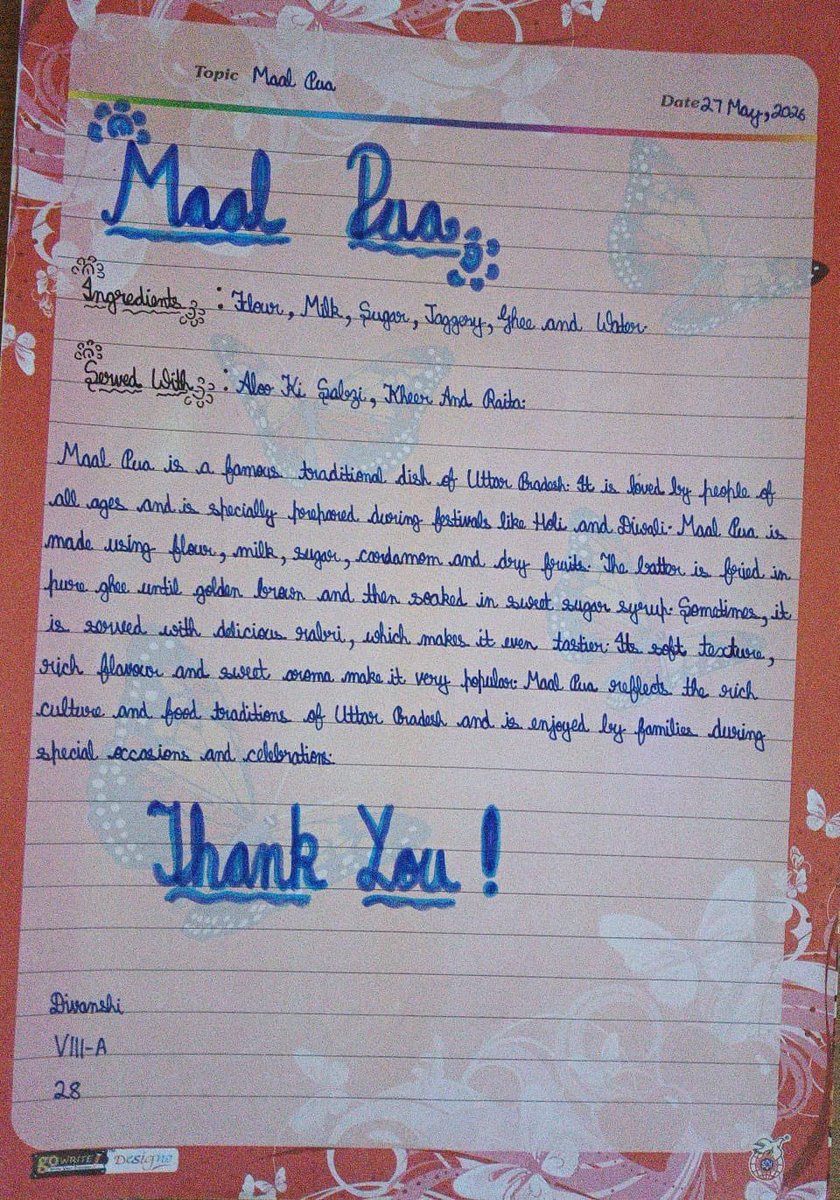 Topic Maal Pua
Date 27 May, 2026
Maal Pua
Ingredients : Flour, Milk, Sugar, Jaggery, Ghee and Water.
Served With : Aloo Ki Sabzi, Kheer And Raita.
Maal Pua is a famous traditional dish of Uttar Pradesh. It is loved by people of
all ages and is specially prepared during festivals like Holi and Diwali. Maal Pua is
made using flour, milk, sugar, cardamom and dry fruits. The batter is fried in
pure ghee until golden brown and then soaked in sweet sugar syrup. Sometimes, it
is served with delicious rabri, which makes it even tastier. Its soft texture,
rich flavour and sweet aroma make it very popular. Maal Pua reflects the rich
culture and food traditions of Uttar Pradesh and is enjoyed by families during
special occasions and celebrations.
Thank You !
Divanshi
VIII-A
28
go WRITE Designo